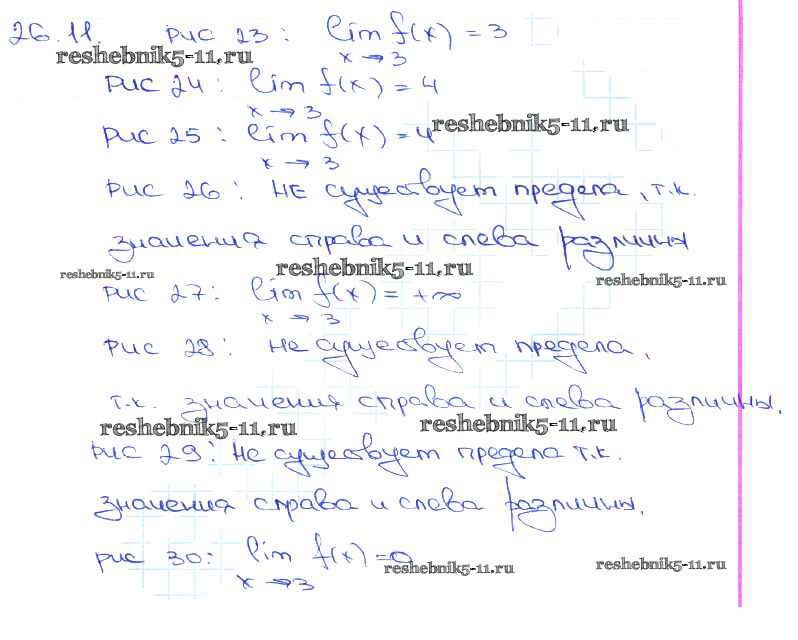 26.11. рис 23: lim f(x) = 3
x → 3
reshebnik5-11.ru
рис 24: lim f(x) = 4
x → 3
reshebnik5-11.ru
рис 25: lim f(x) = 4
x → 3
рис 26: не существует предела, т.к.
значения справа и слева различны
reshebnik5-11.ru reshebnik5-11.ru reshebnik5-11.ru
рис 27: lim f(x) = +∞
x → 3
рис 28: не существует предела,
т.к. значения справа и слева различны.
reshebnik5-11.ru reshebnik5-11.ru
рис 29: не существует предела т.к.
значения справа и слева различны.
рис 30: lim f(x) = 0
x → 3
reshebnik5-11.ru reshebnik5-11.ru